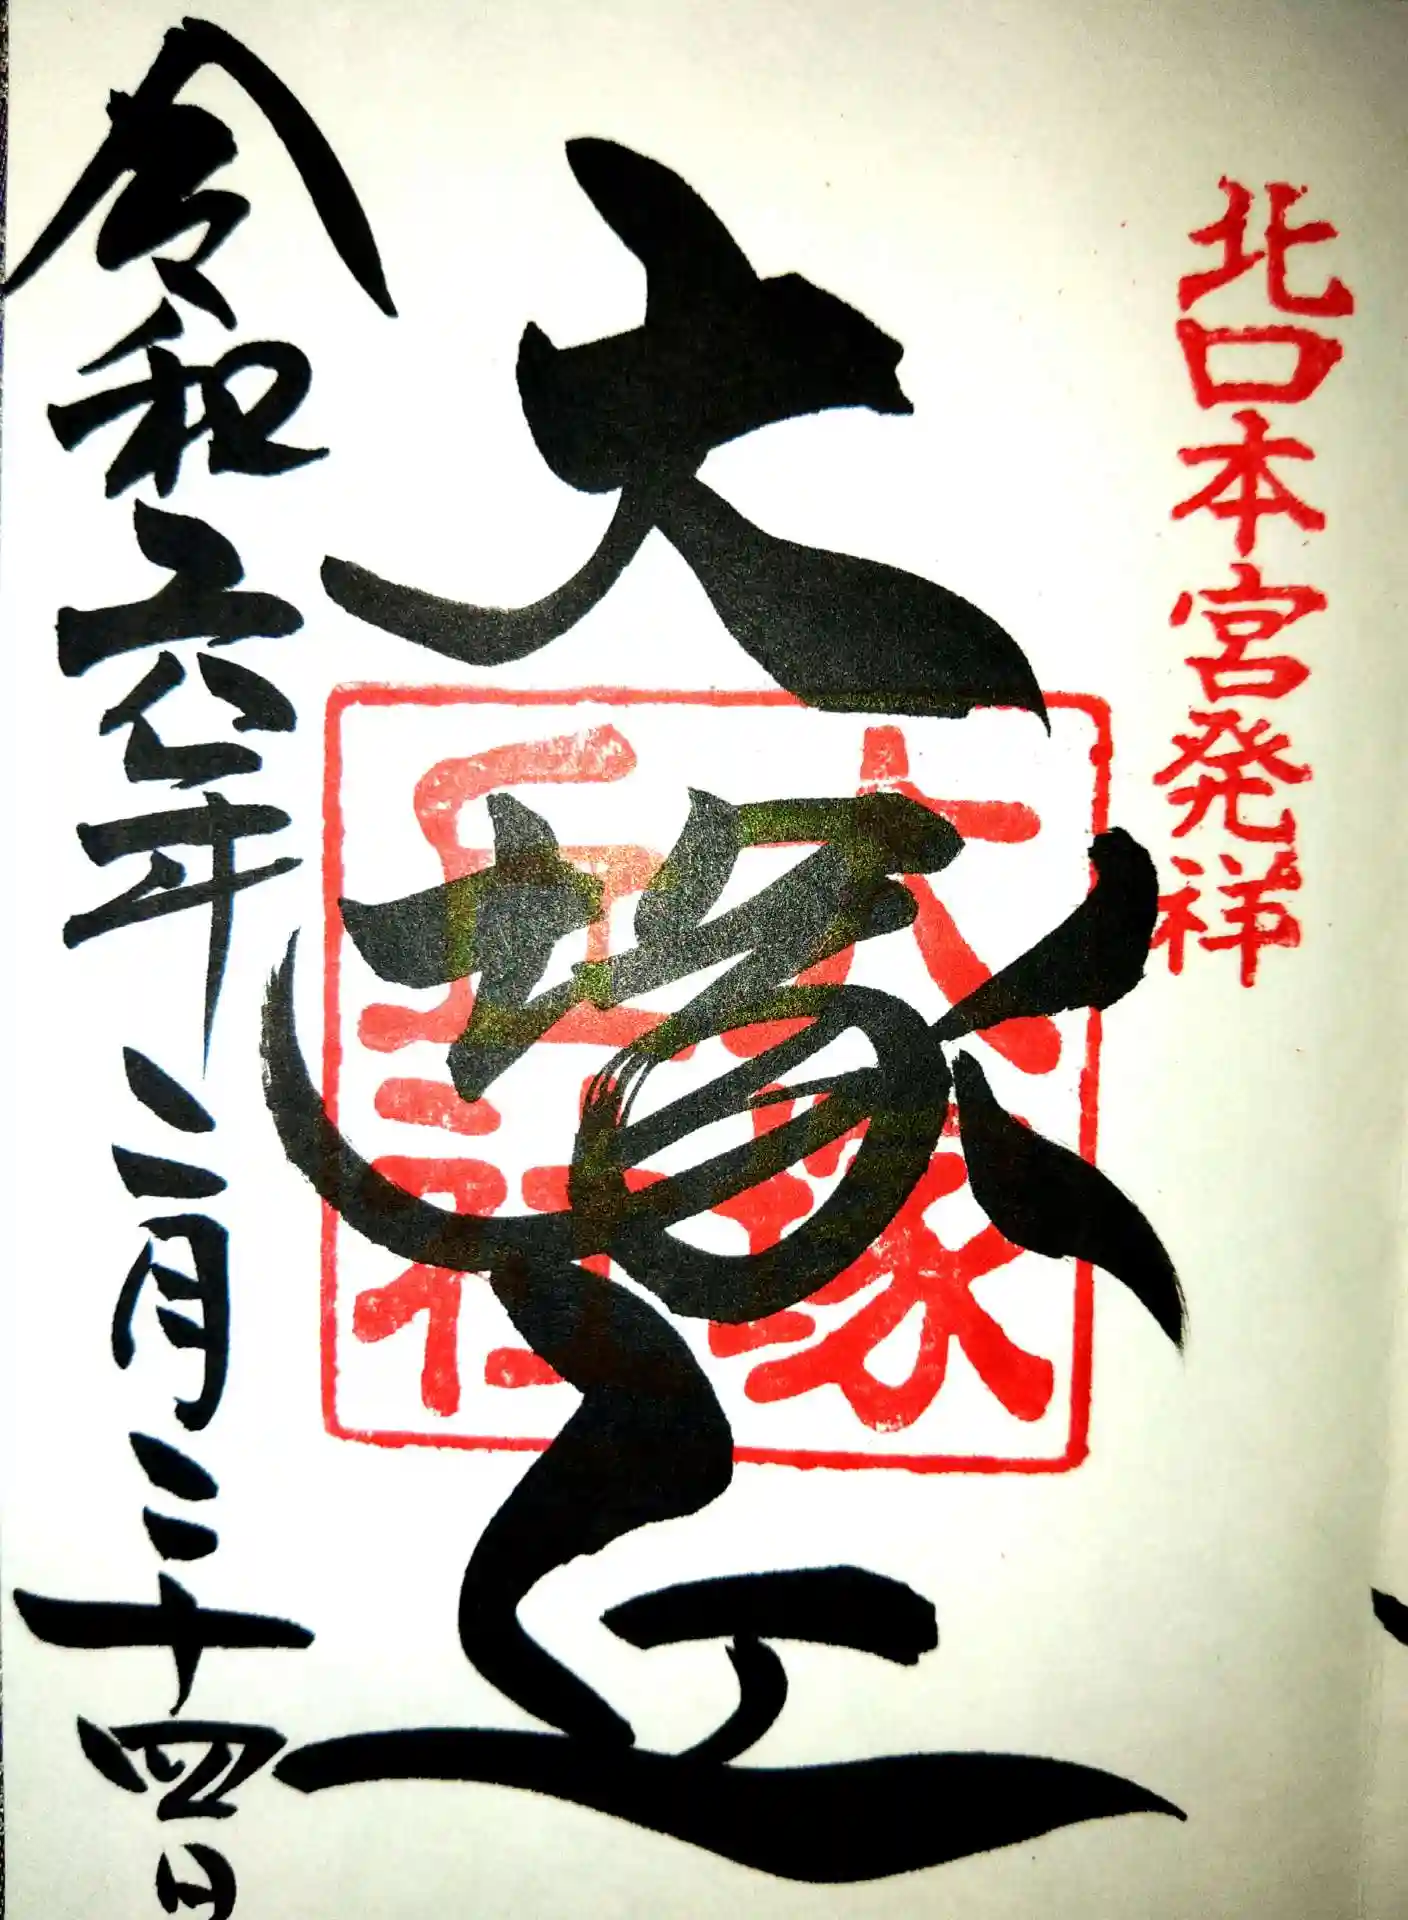 北口本宮発祥
大塚丘
大塚
丘社
令和六年二月二十四日